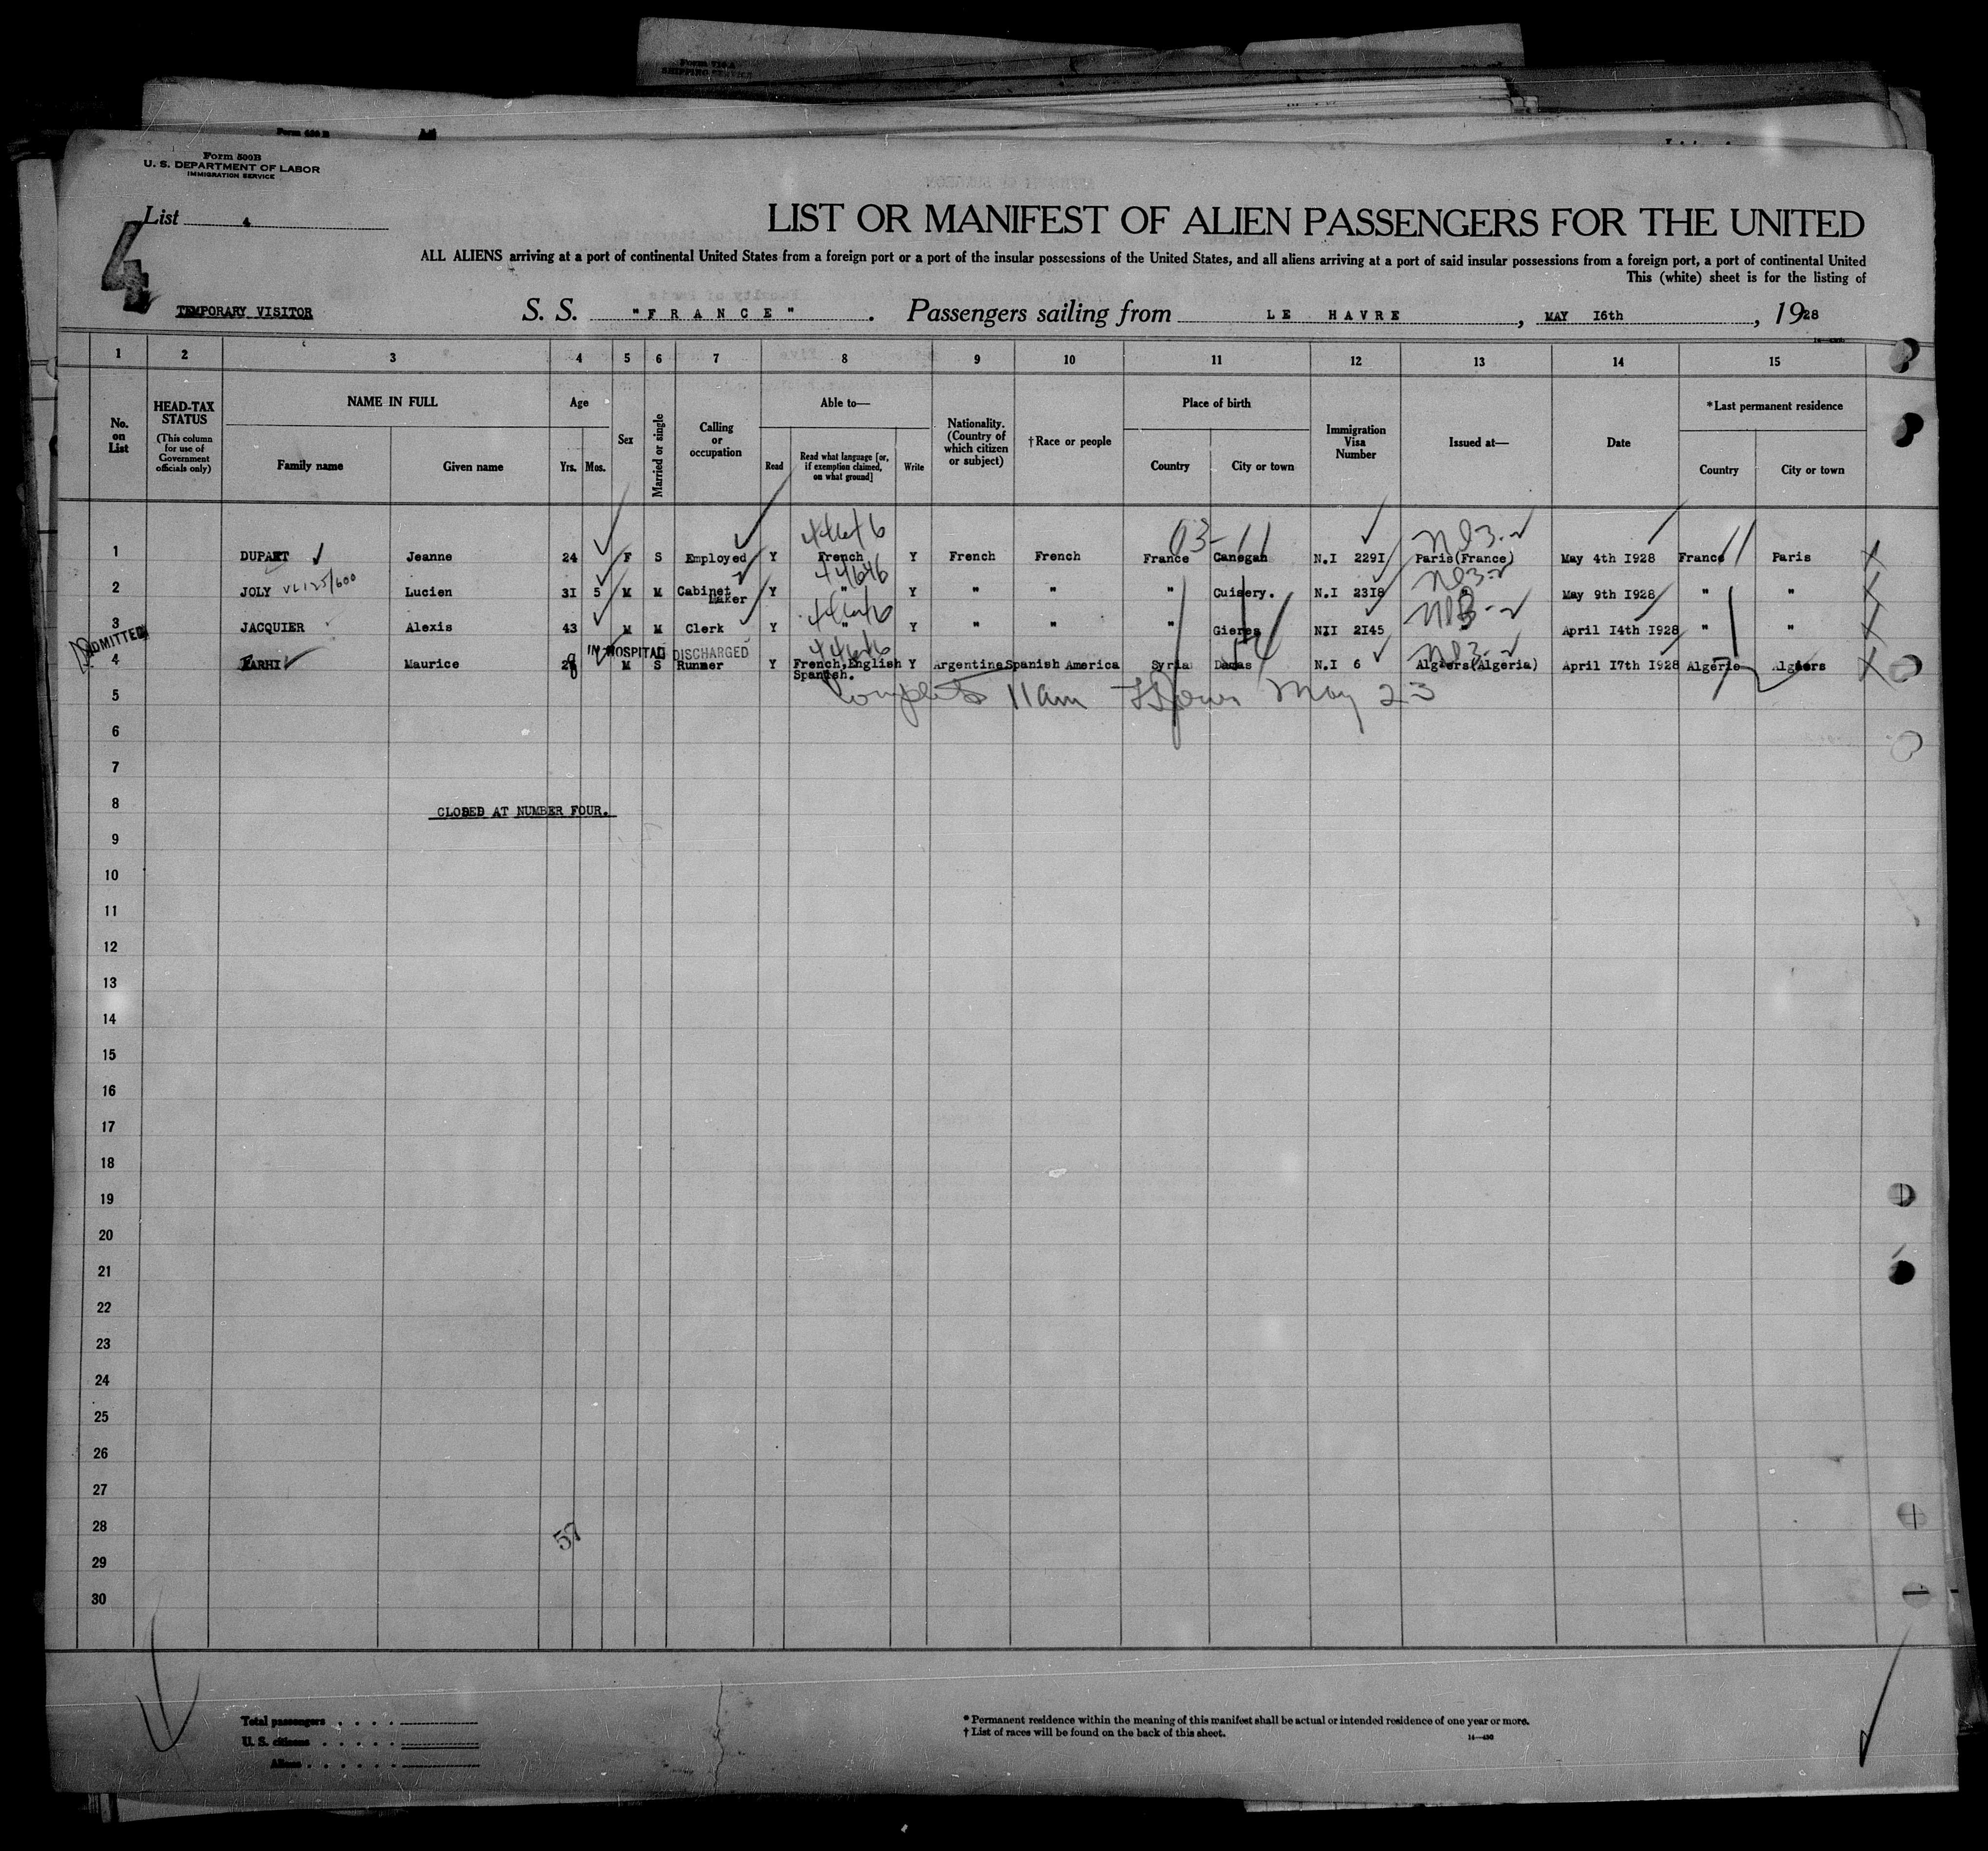 Form 500B
U. S. DEPARTMENT OF LABOR
IMMIGRATION SERVICE
List 4
4
LIST OR MANIFEST OF ALIEN PASSENGERS FOR THE UNITED
ALL ALIENS arriving at a port of continental United States from a foreign port or a port of the insular possessions of the United States, and all aliens arriving at a port of said insular possessions from a foreign port, a port of continental United
This (white) sheet is for the listing of
TEMPORARY VISITOR
S. S. "FRANCE". Passengers sailing from LE HAVRE, MAY 16th, 1928
1 2 3 4 5 6 7 8 9 10 11 12 13 14 15
No. on List
HEAD-TAX STATUS (This column for use of Government officials only)
NAME IN FULL Family name Given name
Age Yrs. Mos.
Sex
Married or single
Calling or occupation
Able to— Read Read what language [or, if exemption claimed, on what ground] Write
Nationality. (Country of which citizen or subject)
†Race or people
Place of birth Country City or town
Immigration Visa Number
Issued at—
Date
*Last permanent residence Country City or town
1 DUPART Jeanne 24 F S Employed Y French Y French French France Canegan N.I 2291 Paris(France) May 4th 1928 France Paris
2 JOLY Lucien 31 5 M M Cabinet Maker Y " Y " " " Cuisery. N.I 2318 " May 9th 1928 " "
3 JACQUIER Alexis 43 M M Clerk Y " Y " " " Gieres NII 2145 April 14th 1928 " "
ADMITTED
IN HOSPITAL DISCHARGED
4 FARHI Maurice 28 M S Runner Y French,English Spanish. Y Argentine Spanish America Syria Damas N.I 6 Algiers(Algeria) April 17th 1928 Algerie Algiers
11 am May 23
5
6
7
8
CLOSED AT NUMBER FOUR.
9
10
11
12
13
14
15
16
17
18
19
20
21
22
23
24
25
26
27
28
57
29
30
Total passengers
U. S. citizens
Aliens
* Permanent residence within the meaning of this manifest shall be actual or intended residence of one year or more.
† List of races will be found on the back of this sheet.
14—430